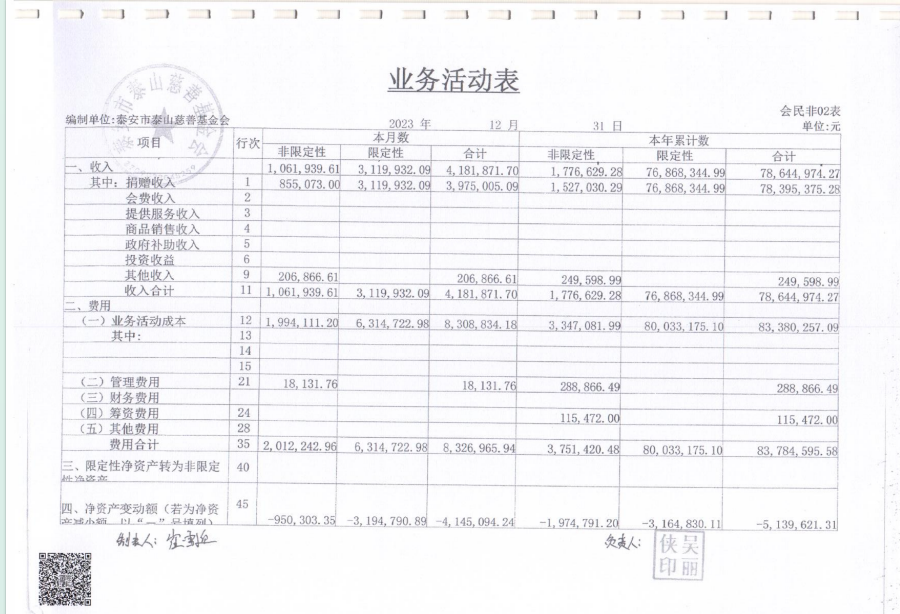 业务活动表
会民非02表
编制单位:泰安市泰山慈善基金会 2023 年 12 月 31 日 单位:元
项目 行次 本月数 本年累计数
非限定性 限定性 合计 非限定性 限定性 合计
一、收入 1,061,939.61 3,119,932.09 4,181,871.70 1,776,629.28 76,868,344.99 78,644,974.27
其中: 捐赠收入 1 855,073.00 3,119,932.09 3,975,005.09 1,527,030.29 76,868,344.99 78,395,375.28
会费收入 2
提供服务收入 3
商品销售收入 4
政府补助收入 5
投资收益 6
其他收入 9 206,866.61 206,866.61 249,598.99 249,598.99
收入合计 11 1,061,939.61 3,119,932.09 4,181,871.70 1,776,629.28 76,868,344.99 78,644,974.27
二、费用
（一）业务活动成本 12 1,994,111.20 6,314,722.98 8,308,834.18 3,347,081.99 80,033,175.10 83,380,257.09
其中: 13
14
15
（二）管理费用 21 18,131.76 18,131.76 288,866.49 288,866.49
（三）财务费用
（四）筹资费用 24 115,472.00 115,472.00
（五）其他费用 28
费用合计 35 2,012,242.96 6,314,722.98 8,326,965.94 3,751,420.48 80,033,175.10 83,784,595.58
三、限定性净资产转为非限定 40
性净资产
四、净资产变动额（若为净资 45
产减少额，以“－”号填列） -950,303.35 -3,194,790.89 -4,145,094.24 -1,974,791.20 -3,164,830.11 -5,139,621.31
制表人: 负责人:
吴丽侠印